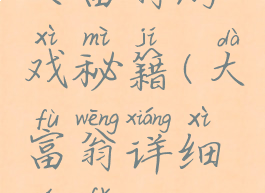 xì mì jí dà
戏秘籍(大
fù wēng xiáng xì
富翁详细